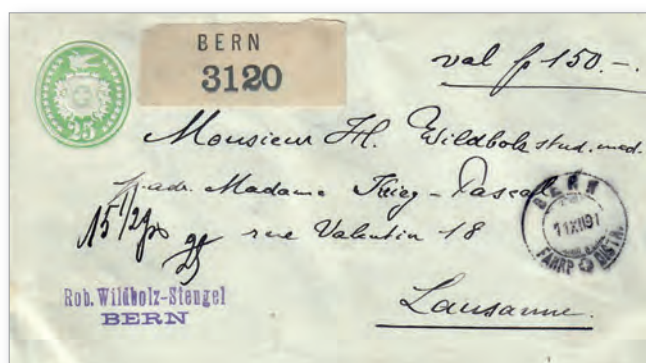 25
BERN
3120
val fr 150.-.
Monsieur H. Wildbolz stud. med.
p. adr. Madame Krieg-Pascal
15 1/2
rue Valentin 18
BERN
11 XII 91
FAHRP DISTR.
Rob. Wildbolz-Stengel
BERN
Lausanne.